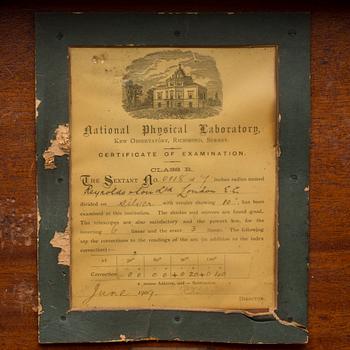 National Physical Laboratory,
Kew Observatory, Richmond, Surrey.
CERTIFICATE OF EXAMINATION.
CLASS B.
The Sextant No. 7 inches radius named
Reynolds & Son Ltd London E.C.
divided on silver with vernier showing 10", has
been examined at this institution. The shades and mirrors are found good.
The telescopes are also satisfactory and the power for the
inverting 6 linear and the erect 3 linear. The following
are the corrections to the readings of the arc (in addition to the index
correction):—
at
Correction
+ means Addition, and − Subtraction.
June 1907.
Director.